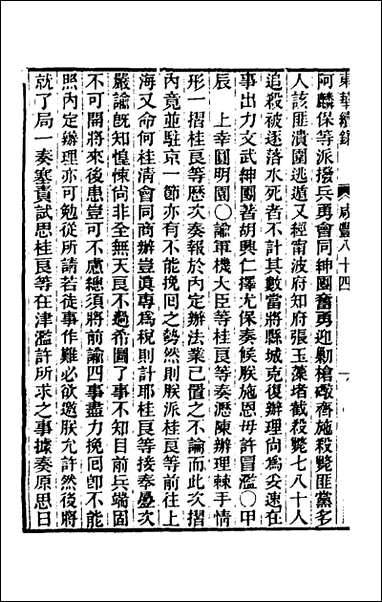 東華續錄 咸豐八十四 一
阿麟保等派撥兵勇會同紳團奮勇迎剿槍礮齊施殺斃匪黨多
人該匪潰圍逃遁又經甯波府知府張玉藻堵截殺斃七八十人
追殺被逐落水死者不計其數當將縣城克復辦理尚爲妥速在
事出力文武紳團著胡興仁擇尤保奏候朕施恩毋許冒濫〇甲
辰 上幸圓明園〇諭軍機大臣等桂良等奏瀝陳辦理棘手情
形一摺桂良等歷次奏報於內定辦法業已置之不論而此次摺
內竟並駐京一節亦有不能挽回之勢然則朕派桂良等前往上
海又命何桂清會同商辦豈眞專爲稅則計耶桂良等接奉屢次
嚴諭旣知惶悚尚非全無天良不過希圖了事不知目前兵端固
不可開將來後患豈可不慮總須將前諭四事盡力挽回卽不能
照內定辦理亦可勉從所請若徒事作難必欲邀朕允許然後將
就了局一奏塞責試思桂良等在津濫許所求之事據奏原思日